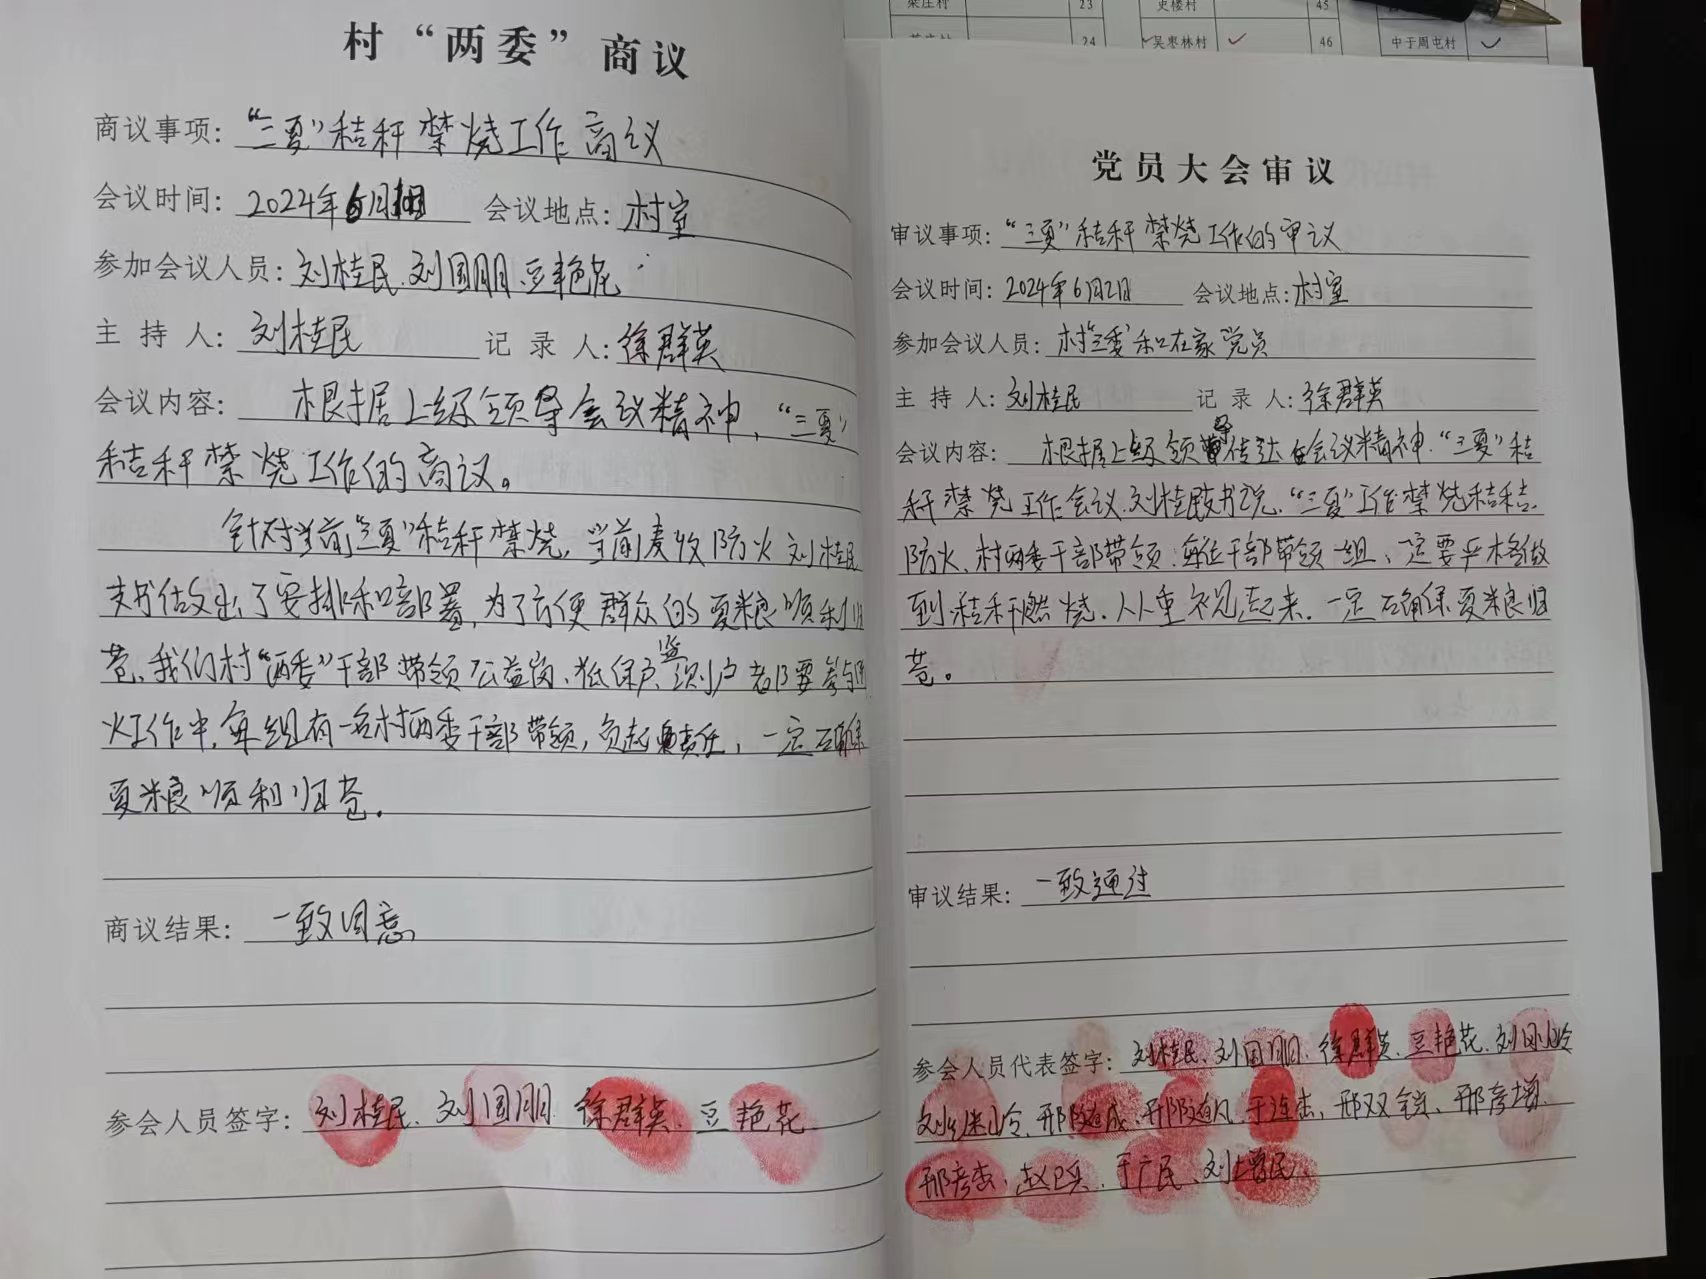 村“两委”商议
商议事项：“三夏”秸秆禁烧工作商议
会议时间：2024年6月 会议地点：村室
参加会议人员：刘桂民、刘国朋、豆艳花
主持人：刘桂民 记录人：徐群英
会议内容：根据上级领导会议精神，“三夏”
秸秆禁烧工作的商议。
针对当前“三夏”秸秆禁烧，当前麦收防火刘桂民
支书做出了安排和部署，为了方便群众的夏粮顺利归
苍、我们村“两委”干部带领公益岗、低保户、监测户都要参与防
火工作中，每组有一名村两委干部带领，负起责任，一定确保
夏粮顺利归苍。
商议结果：一致同意
参会人员签字：刘桂民、刘国朋 徐群英、豆艳花
梁庄村 23 史楼村 45
24 吴枣林村 46 中于周屯村
党员大会审议
审议事项：“三夏”秸秆禁烧工作的审议
会议时间：2024年6月2日 会议地点：村室
参加会议人员：村“三委”和在家党员
主持人：刘桂民 记录人：徐群英
会议内容：根据上级领导传达会议精神、“三夏”秸
秆禁烧工作会议、刘桂民支书说、“三夏”工作禁烧秸秸、
防火、村两委干部带领：每位干部带领一组、一定要严格做
到秸秆燃烧、人人重视起来、一定确保夏粮归
苍。
审议结果：一致通过
参会人员代表签字：刘桂民、刘国朋、徐群英、豆艳花、刘冈岭
邢道成、邢道凡、于连杰、邢双全、邢彦增
邢彦杰、赵卫兴、于广民、刘增民、